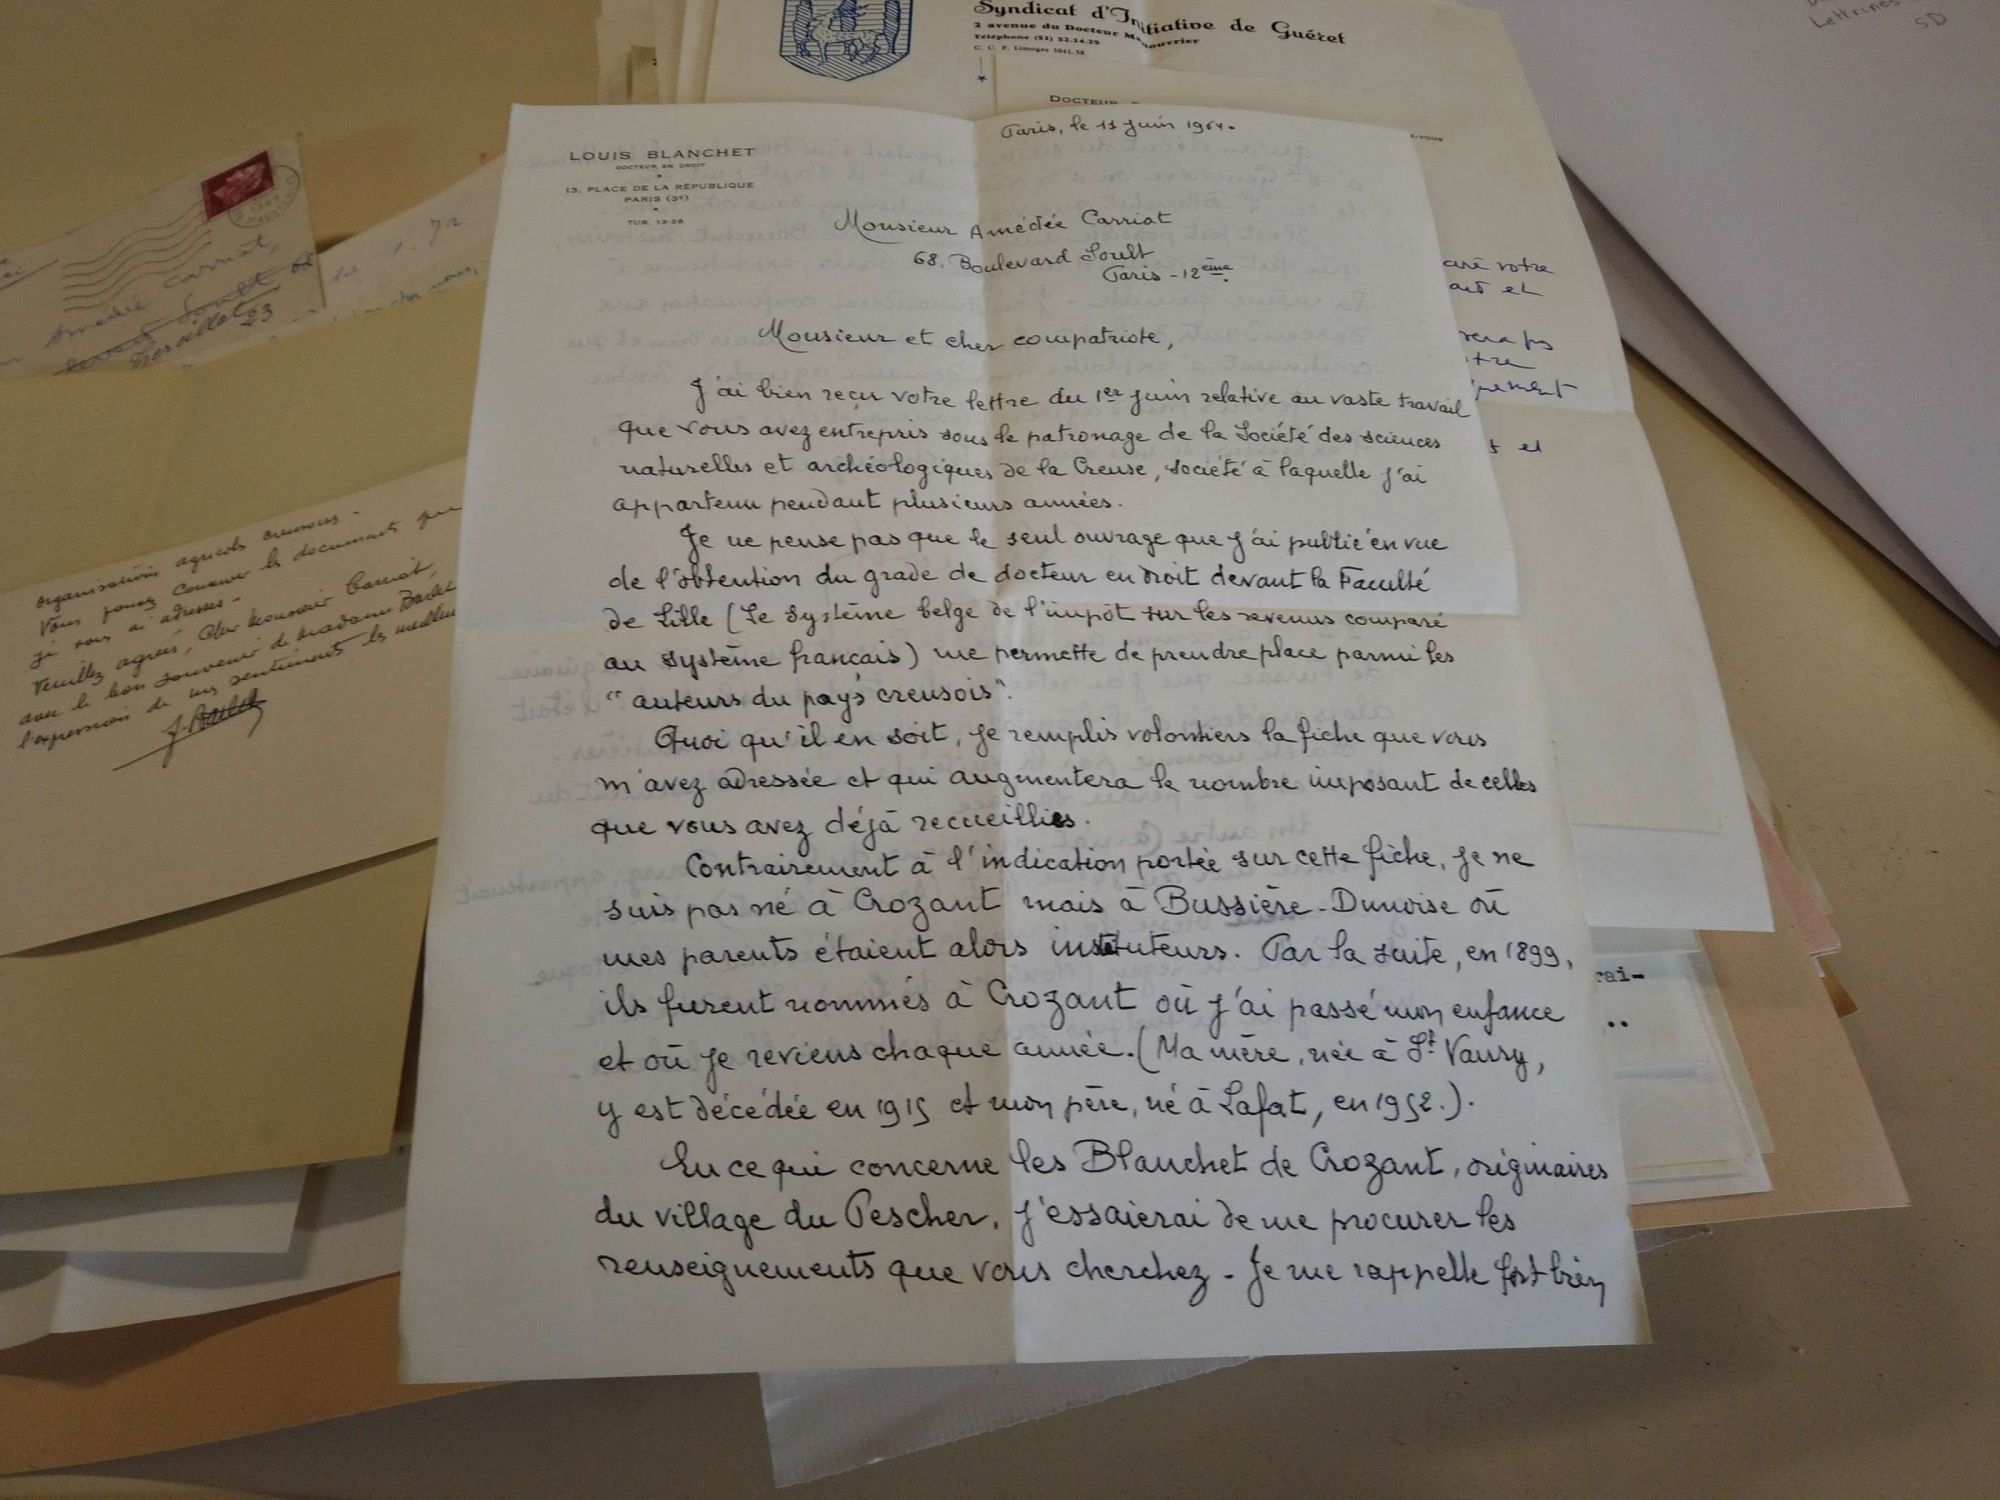 Syndicat d'Initiative de Guéret
2 avenue du Docteur Manouvrier
Téléphone (51) 52.14.29
C. C. P. Limoges 1041.58
DOCTEUR
Lettrines
SD
LOUIS BLANCHET
DOCTEUR EN DROIT
13, PLACE DE LA RÉPUBLIQUE
PARIS (3e)
TUR. 13-28
Paris, le 11 Juin 1964.
Monsieur Amédée Carriat
68, Boulevard Soult
Paris - 12ème.
Monsieur et cher compatriote,
J'ai bien reçu votre lettre du 1er Juin relative au vaste travail
que vous avez entrepris sous le patronage de la Société des sciences
naturelles et archéologiques de la Creuse, société à laquelle j'ai
appartenu pendant plusieurs années.
Je ne pense pas que le seul ouvrage que j'ai publié en vue
de l'obtention du grade de docteur en droit devant la Faculté
de Lille (Le système belge de l'impôt sur les revenus comparé
au système français) me permette de prendre place parmi les
"auteurs du pays creusois".
Quoi qu'il en soit, je remplis volontiers la fiche que vous
m'avez adressée et qui augmentera le nombre imposant de celles
que vous avez déjà recueillies.
Contrairement à l'indication portée sur cette fiche, je ne
suis pas né à Crozant mais à Bussière-Dunoise où
mes parents étaient alors instituteurs. Par la suite, en 1899,
ils furent nommés à Crozant où j'ai passé mon enfance
et où je reviens chaque année. (Ma mère, née à St Vaury,
y est décédée en 1915 et mon père, né à Lafat, en 1952.).
En ce qui concerne les Blanchet de Crozant, originaires
du village du Pescher, j'essaierai de me procurer les
renseignements que vous cherchez - Je me rappelle fort bien
Amédée Carriat,
68
23
organisations agricoles creusoises -
Vous pouvez conserver les documents que
je vous ai adressés -
Veuillez agréer, cher Monsieur Carriat,
avec le bon souvenir de Madame
l'expression de mes sentiments les meilleurs
votre
et
et
rai-
..